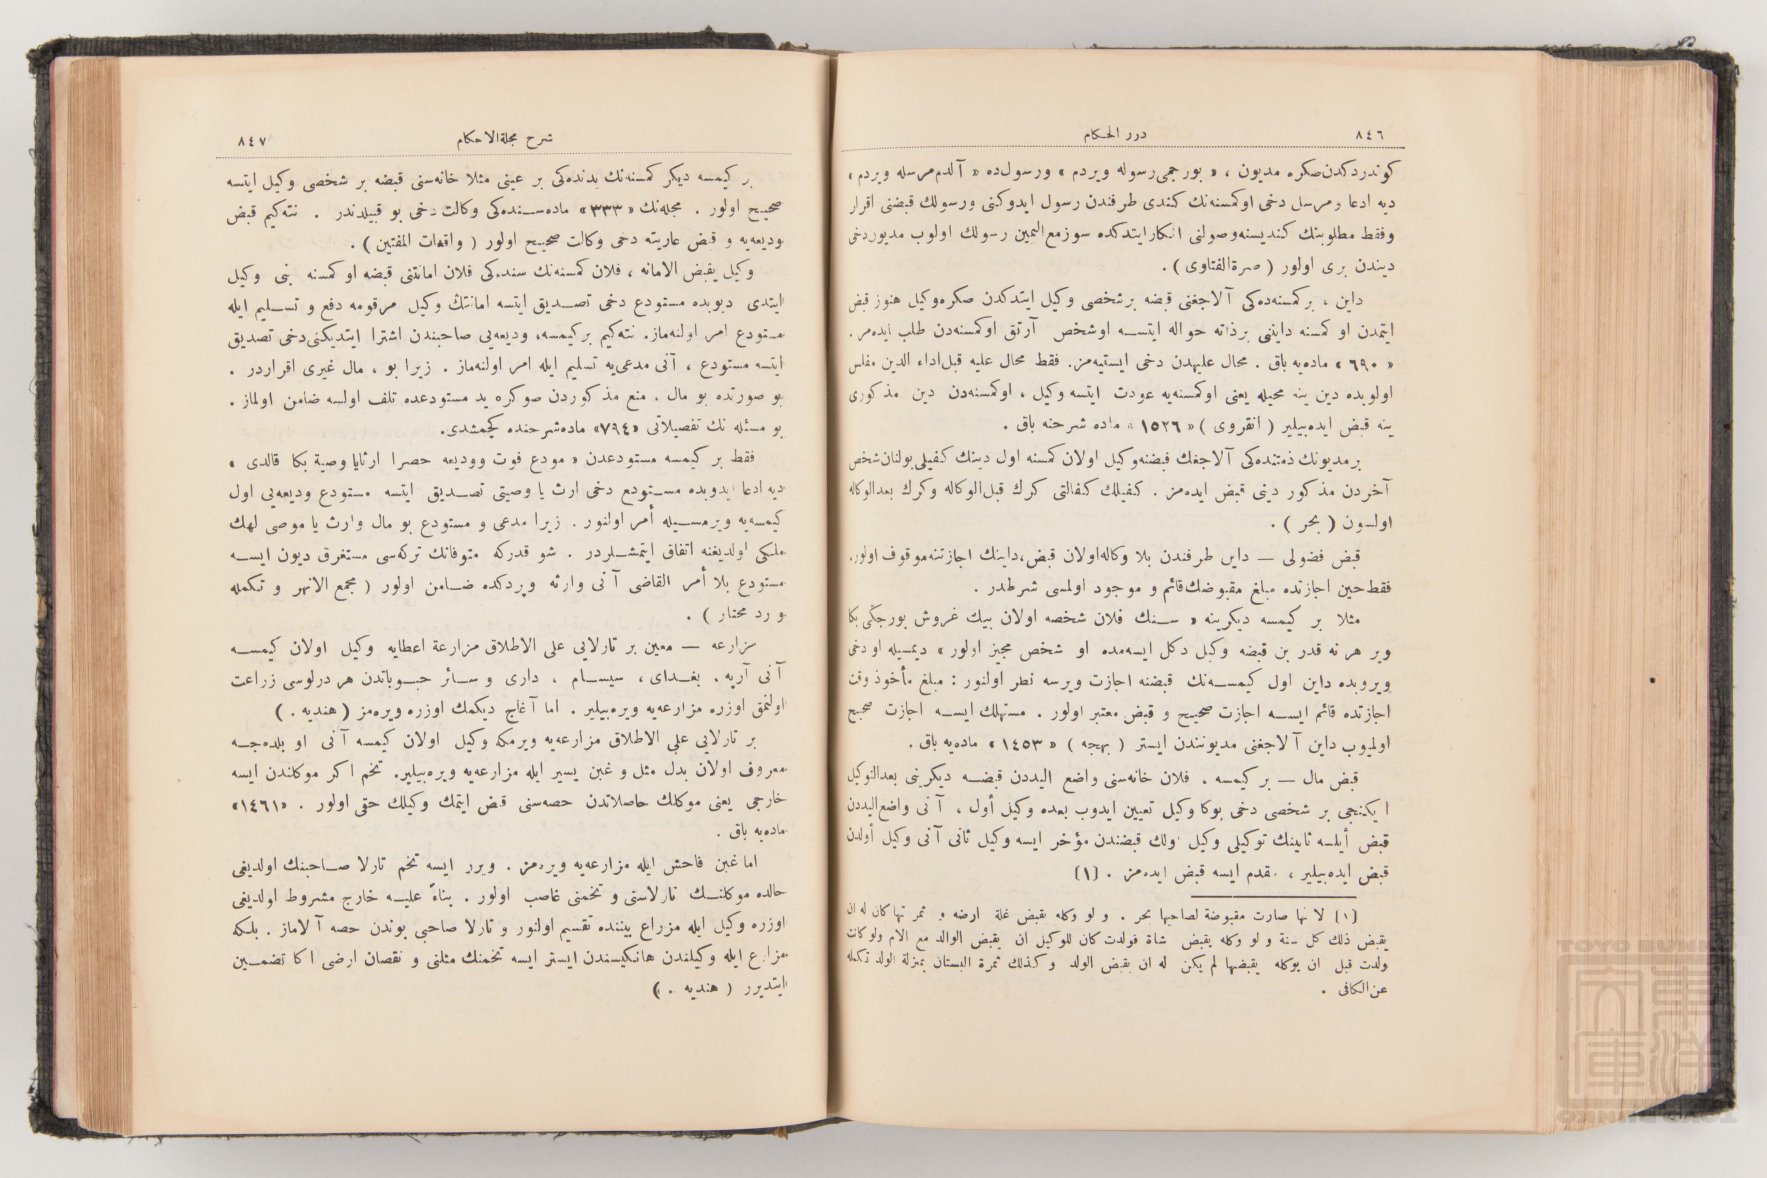 ٨٤٦
درر الحكام
كوندردكدن صكره مديون ، « بورجمى رسوله ويردم » ورسول ده « آلدم مرسله ويردم »
ديه ادعا ومرسل دخى اوكمسنه نك كندى طرفندن رسول ايدوكنى ورسولك قبضنى اقرار
وفقط مطلوبنك كنديسنه وصولنى انكار ايتدكده سوز مع اليمين رسولك اولوب مديون دخى
ديندن برى اولور ( صرة الفتاوى ) .
داين ، بركمسنه ده كى آلاجغنى قبضه بر شخصى وكيل ايتدكدن صكره وكيل هنوز قبض
ايتمدن او كمسنه دايننى بر ذاته حواله ايتسه او شخص آرتق اوكمسنه دن طلب ايده مز .
« ٦٩٠ » ماده يه باق . محال عليهدن دخى ايستيه مز . فقط محال عليه قبل اداء الدين مفلس
اولوبده دين ينه محيله يعنى اوكمسنه يه عودت ايتسه وكيل ، اوكمسنه دن دين مذكورى
ينه قبض ايده بيلير ( انقروى ) « ١٥٢٦ » ماده شرحنه باق .
بر مديونك ذمتنده كى آلاجغك قبضنه وكيل اولان كمسنه اول دينك كفيلى بولنان شخص
آخردن مذكور دينى قبض ايده مز . كفيلك كفالتى كرك قبل الوكاله وكرك بعد الوكاله
اولسون ( بحر ) .
قبض فضولى — داين طرفندن بلا وكاله اولان قبض ، داينك اجازتنه موقوف اولور .
فقط حين اجازتده مبلغ مقبوضك قائم و موجود اولمسى شرطدر .
مثلا بر كيمسه ديكرينه « سنك فلان شخصه اولان بيك غروش بورجكى بكا
وير هر نه قدر بن قبضه وكيل دكل ايسه مده او شخص مجيز اولور » ديمسيله او دخى
ويروبده داين اول كيمسه نك قبضنه اجازت ويرسه نظر اولنور : مبلغ مأخوذ وقت
اجازتده قائم ايسه اجازت صحيح و قبض معتبر اولور . مستهلك ايسه اجازت صحيح
اولميوب داين آلاجغنى مديونندن ايستر ( بهجه ) « ١٤٥٣ » ماده يه باق .
قبض مال — بر كيمسه ، فلان خانه سنى واضع اليددن قبضه ديكرينى بعد التوكيل
ايكينجى بر شخصى دخى بوكا وكيل تعيين ايدوب بعده وكيل أول ، آنى واضع اليددن
قبض أيلسه ثانينك توكيلى وكيل اولك قبضندن مؤخر ايسه وكيل ثانى آنى وكيل أولدن
قبض ايده بيلير ، مقدم ايسه قبض ايده مز . (١)
(١) لانها صارت مقبوضة لصاحبها بحر . و لو وكله بقبض غلة ارضه و ثمرتها كان له ان
يقبض ذلك كل سنة و لو وكله بقبض شاة فولدت كان للوكيل ان يقبض الوالد مع الام ولو كانت
ولدت قبل ان يوكله بقبضها لم يكن له ان يقبض الولد وكذلك ثمرة البستان بمنزلة الولد تكمله
عن الكافى .
شرح مجلة الاحكام
٨٤٧
بر كيمسه ديكر كمسنه نك يدنده كى بر عينى مثلا خانه سنى قبضه بر شخصى وكيل ايتسه
صحيح اولور . مجله نك « ٣٣٣ » ماده سنده كى وكالت دخى بو قبيلدندر . نته كيم قبض
وديعه يه و قبض عاريته دخى وكالت صحيح اولور ( واقعات المفتين ) .
وكيل بقبض الامانه ، فلان كمسنه نك سنده كى فلان امانتنى قبضه او كمسنه بنى وكيل
ايتدى ديوبده مستودع دخى تصديق ايتسه امانتك وكيل مرقومه دفع و تسليم ايله
مستودع امر اولنه ماز . نته كيم بر كيمسه ، وديعه يى صاحبندن اشترا ايتديكنى دخى تصديق
ايتسه مستودع ، آنى مدعى يه تسليم ايله امر اولنه ماز . زيرا بو ، مال غيرى اقراردر .
بو صورتده بو مال ، منع مذكوردن صوكره يد مستودعده تلف اولسه ضامن اولماز .
بو مسئله نك تفصيلاتى « ٧٩٤ » ماده شرحنده كچمشدى .
فقط بر كيمسه مستودعدن « مودع فوت ووديعه حصرا ارثا يا وصية بكا قالدى »
ديه ادعا ايدوبده مستودع دخى ارث يا وصيتى تصديق ايتسه مستودع وديعه يى اول
كيمسه يه ويرمسيله أمر اولنور . زيرا مدعى و مستودع بو مال وارث يا موصى لهك
ملكى اولديغنه اتفاق ايتمشلردر . شو قدركه متوفانك تركه سى مستغرق ديون ايسه
مستودع بلا أمر القاضى آنى وارثه ويردكده ضامن اولور ( مجمع الانهر و تكمله
و رد محتار ) .
مزارعه — معين بر تارلايى على الاطلاق مزارعة اعطايه وكيل اولان كيمسه
آنى آرپه ، بغداى ، سيسام ، دارى و سائر حبوباتدن هر درلوسى زراعت
اولنمق اوزره مزارعه يه ويره بيلير . اما آغاج ديكمك اوزره ويره مز ( هنديه . )
بر تارلايى على الاطلاق مزارعه يه ويرمكه وكيل اولان كيمسه آنى او بلده جه
معروف اولان بدل مثل و غبن يسير ايله مزارعه يه ويره بيلير . تخم اكر موكلندن ايسه
خارجى يعنى موكلك حاصلاتدن حصه سنى قبض ايتمك وكيلك حقى اولور . « ١٤٦١ »
ماده يه باق .
اما غبن فاحش ايله مزارعه يه ويره مز . ويرر ايسه تخم تارلا صاحبنك اولديغى
حالده موكلنك تارلاسنى و تخمنى غاصب اولور . بناءً عليه خارج مشروط اولديغى
اوزره وكيل ايله مزراع بيننده تقسيم اولنور و تارلا صاحبى بوندن حصه آلاماز . بلكه
مزارع ايله وكيلندن هانكيسندن ايستر ايسه تخمنك مثلنى و نقصان ارضى اكا تضمين
ايتديرر ( هنديه . )